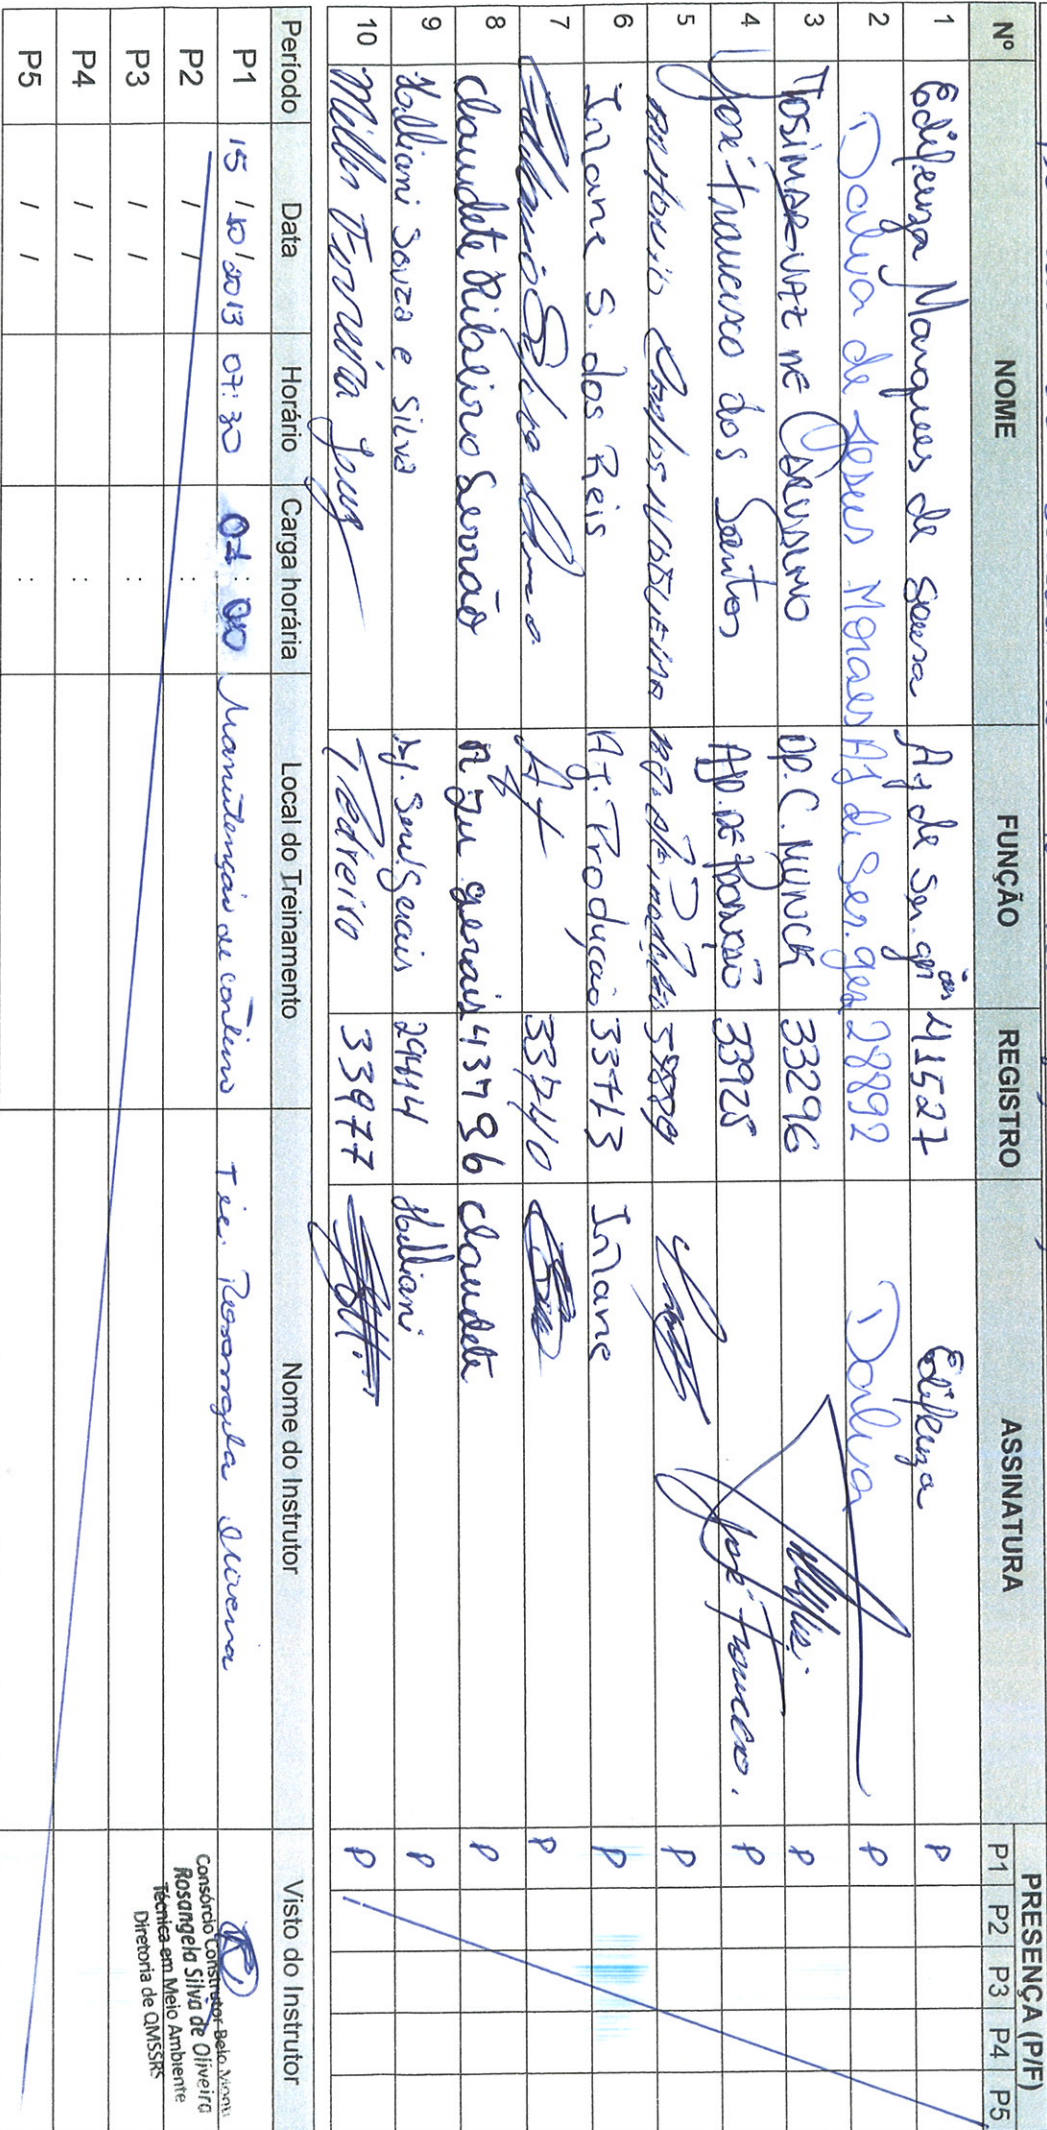 Nº NOME FUNÇÃO REGISTRO ASSINATURA PRESENÇA (P/F)
P1 P2 P3 P4 P5
1 Edifenza Marques de Sousa Aj de Ser. 41527 Edifenza P
2 Dalva de Jesus Moraes Aj de Ser. ges 28892 Dalva P
3 Josimar Vaz de OP. C. MUNCK 33296 P
4 José Francisco dos Santos AJD. DE 33925 José Francisco. P
5 Antonio Carlos P
6 Iziane S. dos Reis Aj. Produção 33713 Iziane P
7 33740 P
8 Claudete Ribeiro Serrão A Ju gerais 43796 Claudete P
9 Halliani Souza e Silva Aj. Serv. Gerais 29414 Halliani P
10 Ferreira Pedreiro 33977 P
Período Data Horário Carga horária Local do Treinamento Nome do Instrutor Visto do Instrutor
P1 15 / 10 / 2013 07:30 Manutenção de canteiro Téc. Rosangela Oliveira
P2 / / :
P3 / / :
P4 / / :
P5 / / :
Consórcio Construtor Belo Monte
Rosangela Silva de Oliveira
Técnica em Meio Ambiente
Diretoria de QMSSRS